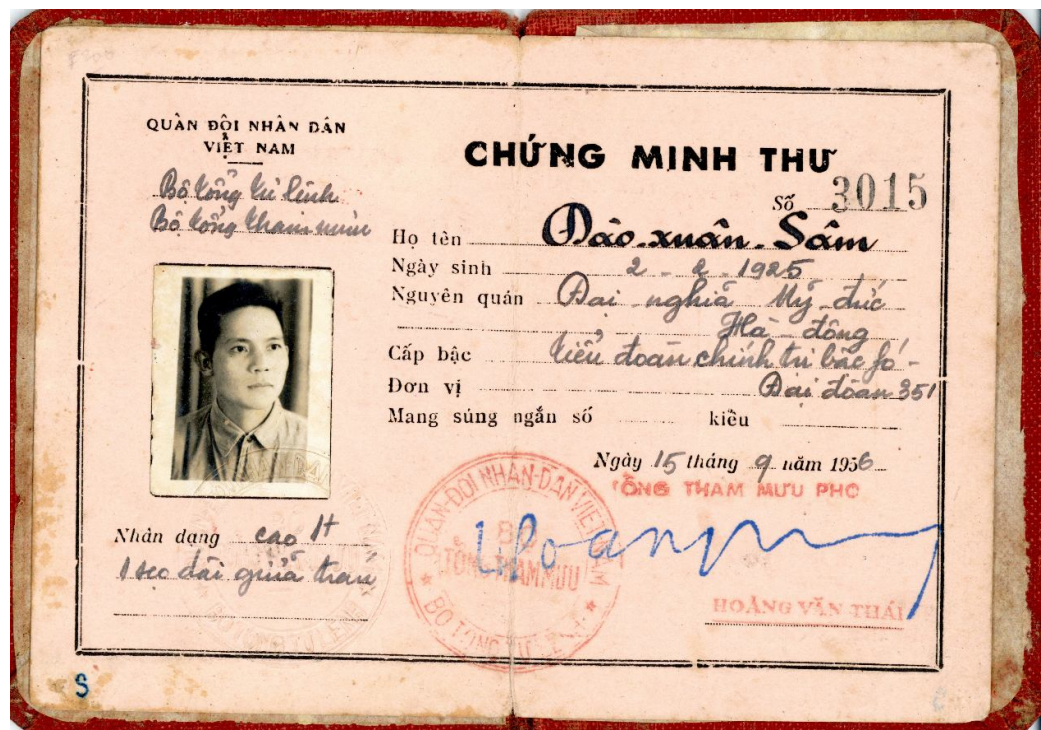 QUÂN ĐỘI NHÂN DÂN
VIỆT NAM
Bộ tổng tư lệnh
Bộ tổng tham mưu
CHỨNG MINH THƯ
Số 3015
Họ tên Đào xuân Sâm
Ngày sinh 2 - 2 - 1925
Nguyên quán Đại nghĩa Mỹ đức
Hà đông
Cấp bậc tiểu đoàn chính trị bậc fó -
Đơn vị Đại đoàn 351
Mang súng ngắn số kiểu
Ngày 15 tháng 9 năm 1956
TỔNG THAM MƯU PHÓ
QUÂN-ĐỘI NHÂN-DÂN VIỆT NAM
BỘ
TỔNG THAM MƯU
BỘ TỔNG TƯ LỆNH
HOÀNG VĂN THÁI
Nhân dạng cao 1t
1 sẹo dài giữa trán
S